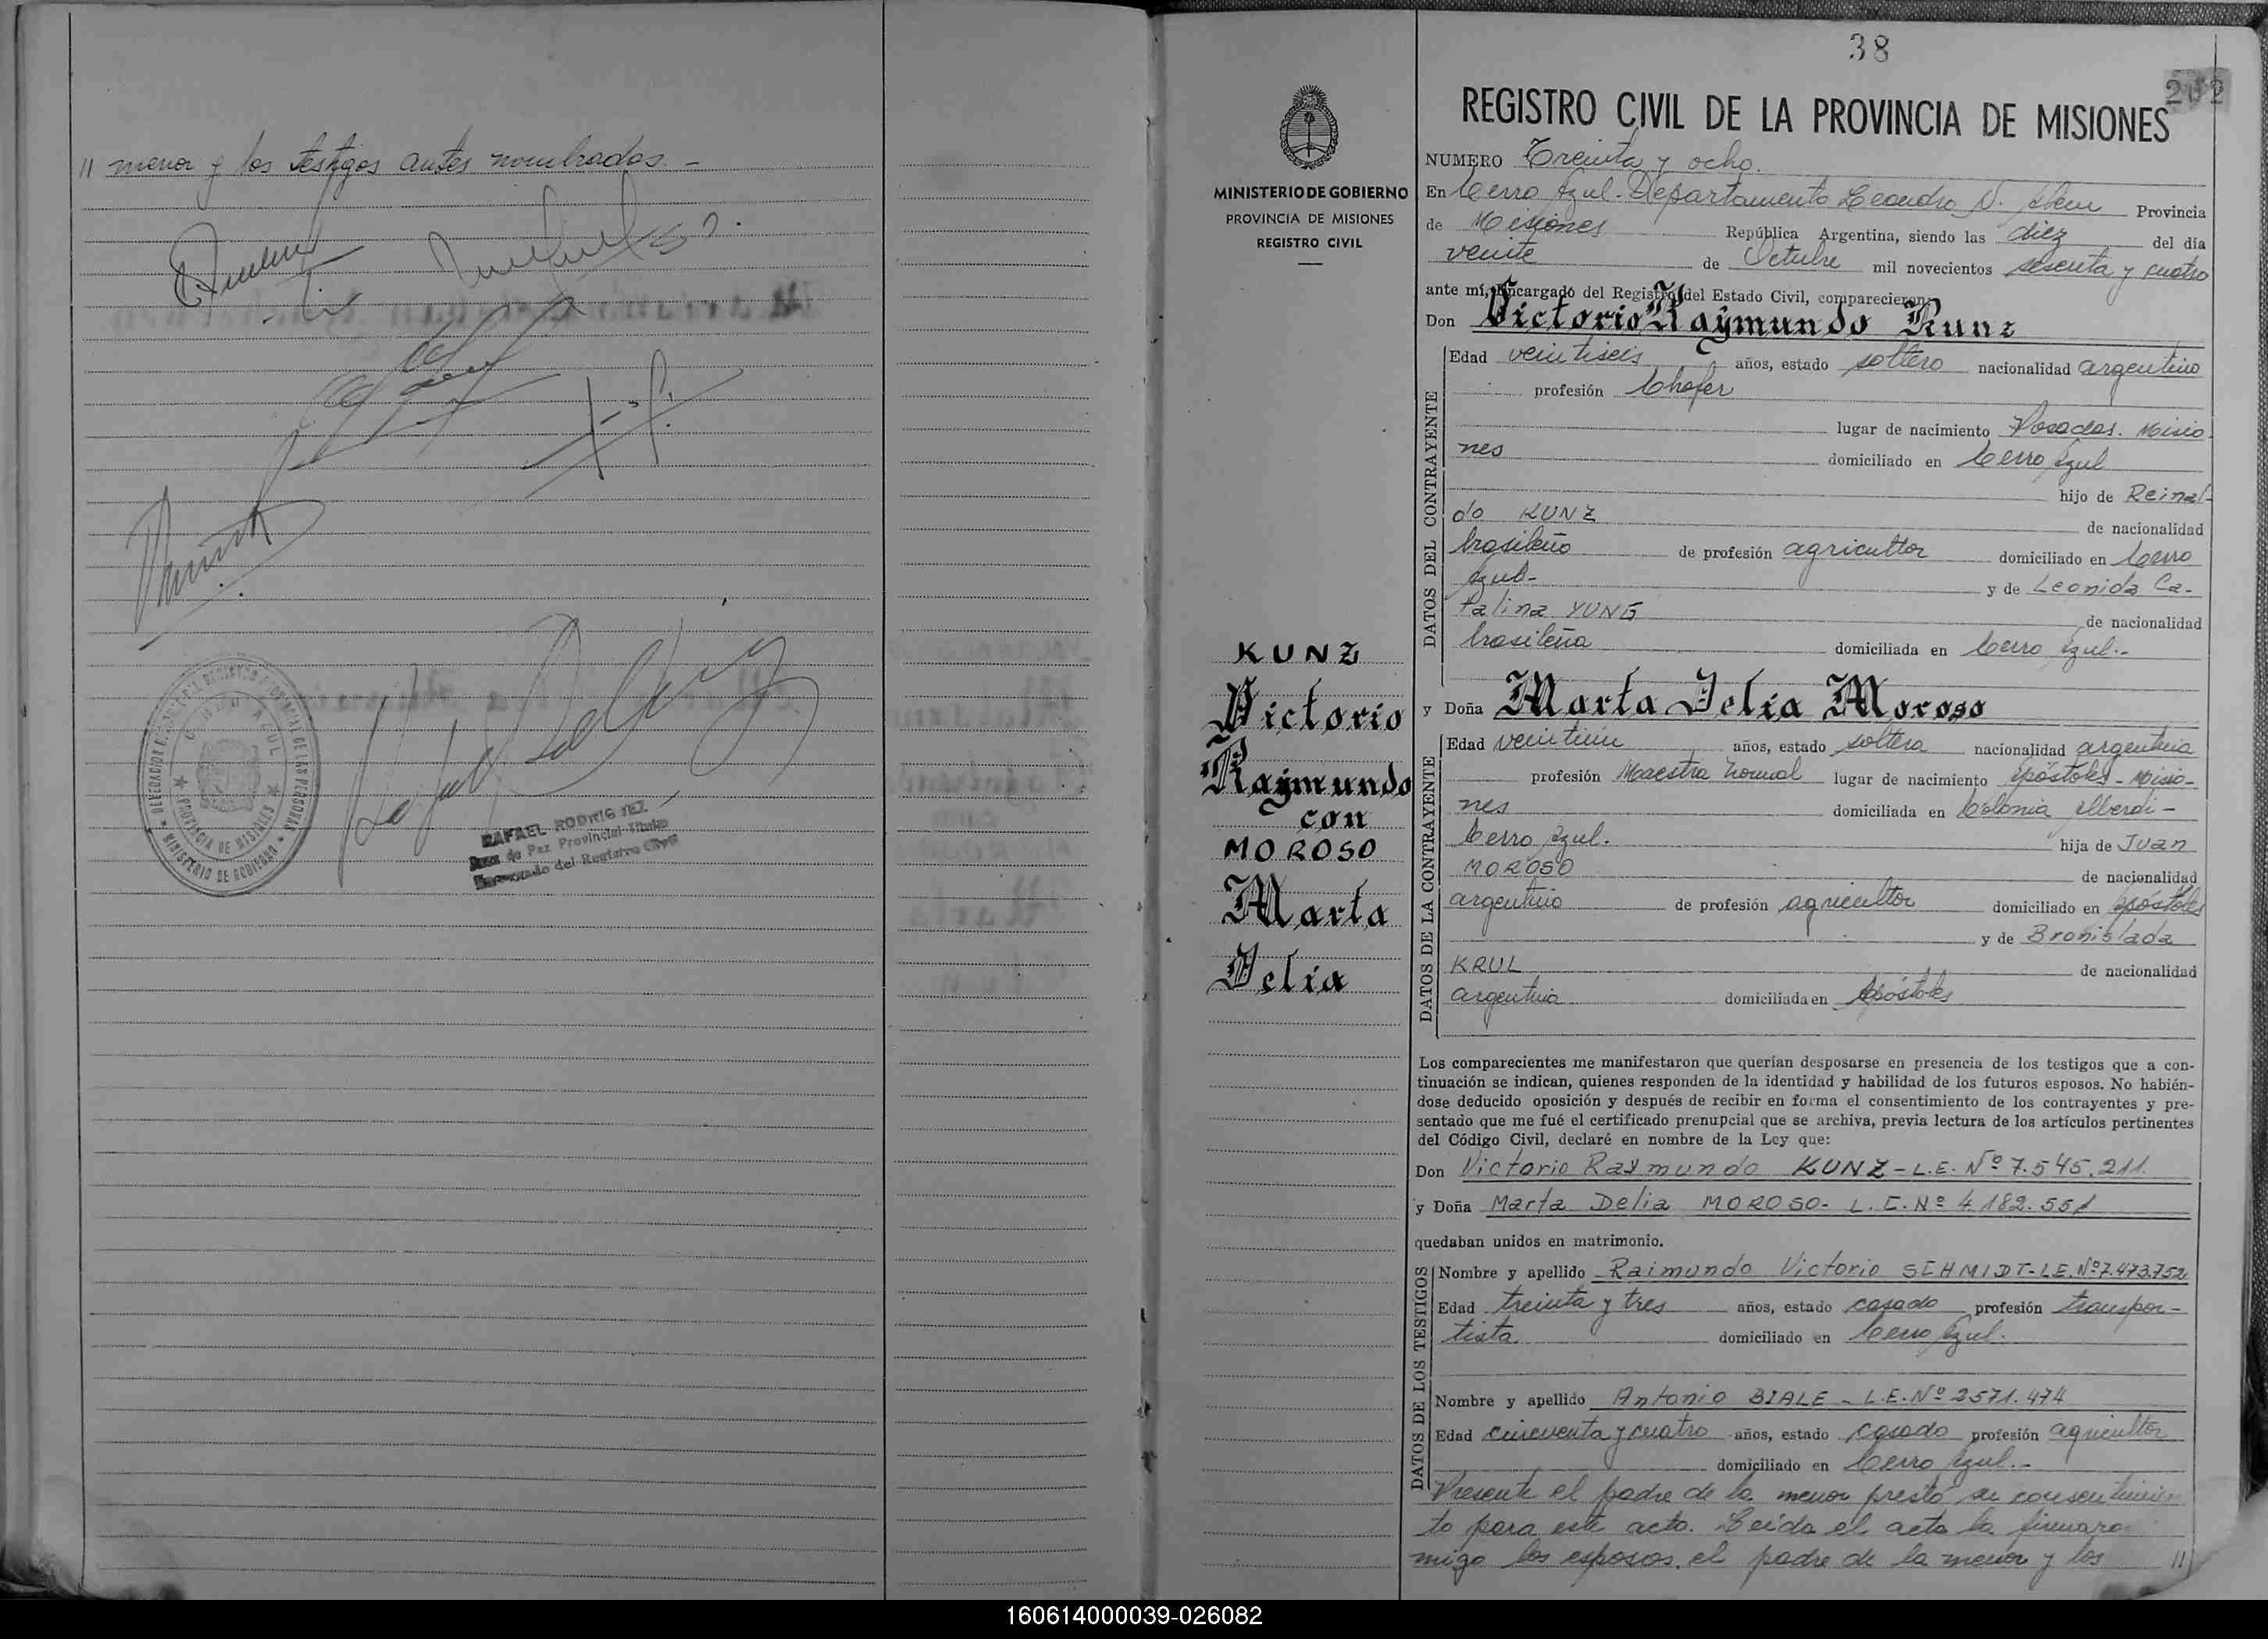 // menor y los testigos antes nombrados. -
REGISTRO
CERRO AZUL
PROVINCIA DE MISIONES
MINISTERIO DE GOBIERNO
DE LAS PERSONAS
RAFAEL RODRIGUEZ
Juez de Paz Provincial Titular
Encargado del Registro Civil
MINISTERIO DE GOBIERNO
PROVINCIA DE MISIONES
REGISTRO CIVIL
KUNZ
Victorio
Raymundo
con
MOROSO
Marta
Delia
38
202
REGISTRO CIVIL DE LA PROVINCIA DE MISIONES
NUMERO Treinta y ocho.
En Cerro Azul. Departamento Leandro N. Alem Provincia
de Misiones República Argentina, siendo las diez del día
veinte de Octubre mil novecientos sesenta y cuatro
ante mí, Encargado del Registro del Estado Civil, comparecieron:
Don Victorio Raymundo Kunz
DATOS DEL CONTRAYENTE
Edad veintiseis años, estado soltero nacionalidad argentino
profesión Chofer
lugar de nacimiento Posadas. Misio-
nes domiciliado en Cerro Azul
hijo de Reinal-
do KUNZ de nacionalidad
brasileño de profesión agricultor domiciliado en Cerro
Azul- y de Leonida Ca-
talina YUNG de nacionalidad
brasileña domiciliada en Cerro Azul.-
y Doña Marta Delia Moroso
DATOS DE LA CONTRAYENTE
Edad veintiun años, estado soltera nacionalidad argentina
profesión Maestra Normal lugar de nacimiento Apóstoles - Misio-
nes domiciliada en Colonia Alberdi -
Cerro Azul. hija de Juan
MOROSO de nacionalidad
argentino de profesión agricultor domiciliado en Apóstoles
y de Bronislada
KRUL de nacionalidad
argentina domiciliada en Apóstoles
Los comparecientes me manifestaron que querían desposarse en presencia de los testigos que a con-
tinuación se indican, quienes responden de la identidad y habilidad de los futuros esposos. No habién-
dose deducido oposición y después de recibir en forma el consentimiento de los contrayentes y pre-
sentado que me fué el certificado prenupcial que se archiva, previa lectura de los artículos pertinentes
del Código Civil, declaré en nombre de la Ley que:
Don Victorio Raymundo KUNZ - L.E. Nº 7.545.211.
y Doña Marta Delia MOROSO- L.C. Nº 4.182.551
quedaban unidos en matrimonio.
DATOS DE LOS TESTIGOS
Nombre y apellido Raimundo Victorio SCHMIDT- L.E. Nº 7.473.752
Edad treinta y tres años, estado casado profesión transpor-
tista domiciliado en Cerro Azul.
Nombre y apellido Antonio BIALE - L.E. Nº 2571.474
Edad cincuenta y cuatro años, estado casado profesión agricultor
domiciliado en Cerro Azul.-
Presente el padre de la menor prestó su consentimien
to para este acto. Leída el acta la firmaro
migo los esposos, el padre de la menor y los //
160614000039-026082